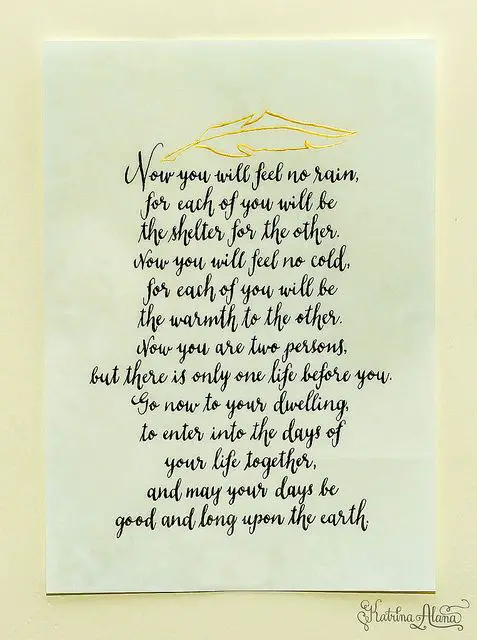 Now you will feel no rain,
for each of you will be
the shelter for the other.
Now you will feel no cold,
for each of you will be
the warmth to the other.
Now you are two persons,
but there is only one life before you.
Go now to your dwelling,
to enter into the days of
your life together,
and may your days be
good and long upon the earth.
Katrina Alana